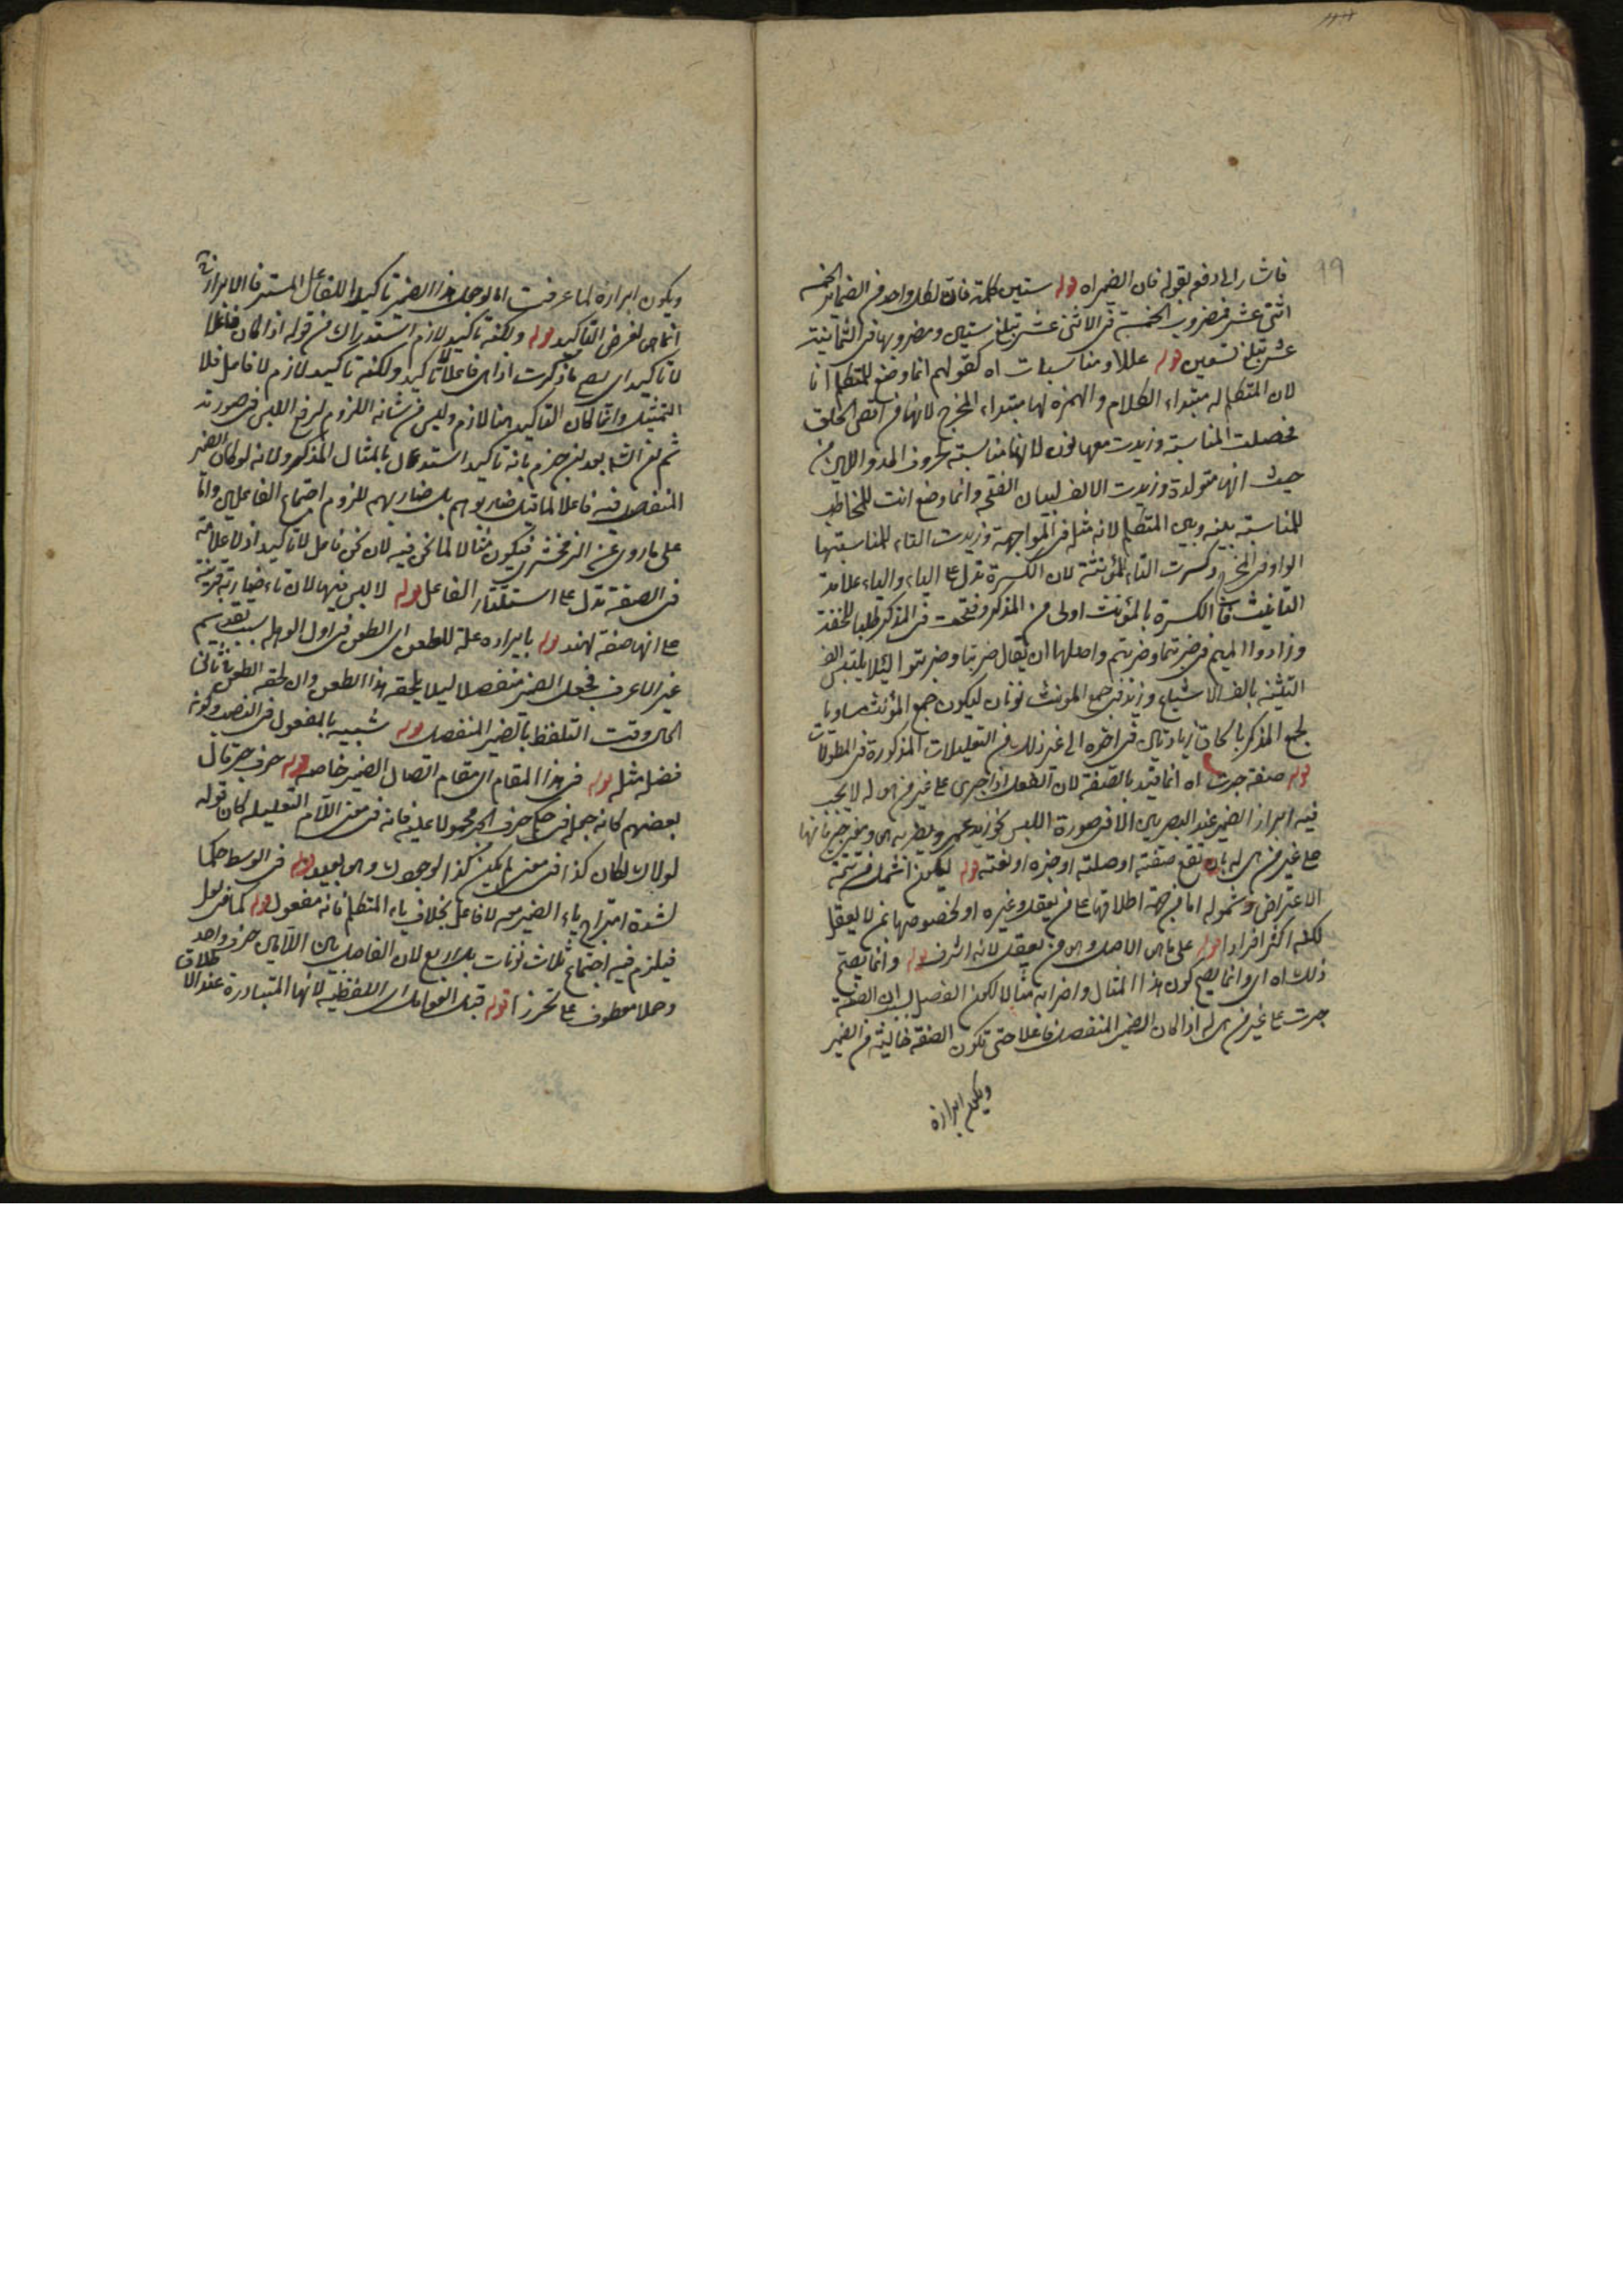 99
فاشار الى دفعه بقوله فان الضمير اه قوله ستين كلمة فان لكل واحد من الضمائر الخمسة
اثنى عشر فمضروب الخمسة فى الاثنى عشر تبلغ ستين ومضروبها فى الثمانية
عشر تبلغ تسعين قوله عللا ومناسبات اه كقولهم انما وضع للمتكلم انا
لان المتكلم له مبتداء الكلام والهمزة لها مبتداء المخرج لانها من اقصى الحلق
فحصلت المناسبة وزيدت معها نون لانها مناسبة بحروف المد واللين من
حيث انها متولدة وزيدت الالف لبيان الفتح وانما وضع انت للمخاطب
للمناسبة بينه وبين المتكلم لانه مثله فى المواجهة وزيدت التاء لمناسبتها
الواو فى المخرج وكسرت التاء للمؤنثة لان الكسرة تدل على الياء والياء علامة
التانيث فان الكسرة بالمؤنث اولى من المذكر وفتحت فى المذكر طلبا للخفة
وزادوا الميم فى ضربتما وضربتم واصلها ان يقال ضربتا وضربتوا لئلا يلتبس الف
التثنية بالف الاشباع وزيد فى جمع المؤنث نونان ليكون جمع المؤنث مساويا
لجمع المذكر بالحاق زيادتين فى اخره الى غير ذلك من التعليلات المذكورة فى المطولات
قوله صفة جرت اه انما قيد بالصفة لان الفعل اذا جرى على غير من هى له لا يجب
فيه ابراز الضمير عند البصريين الا فى صورة اللبس نحو زيد عمرو يضربه هو
على غير من هى له بان تقع صفة او صلة او خبره او نعته قوله ليكون اشمل من تتمة
الاعتراض وشموله اما من جهة اطلاقها على من يعقل وغيره او لخصوصها بمن لا يعقل
لكنه اكثر افرادا قوله على ما هى الاصل وهى من يعقل لانه اشرف قوله وانما يصح
ذلك اه اى وانما يصح كون هذا المثال واضرابه مثالا لكون الفصل بسبب ان الصفة
جرت على غير من هى له اذا كان الضمير المنفصل فاعلا حتى تكون الصفة خالية من الضمير
ويكون ابرازه
ويكون ابرازه لما عرفت اما لو جعل هذا الضمير تاكيدا للفاعل المستتر فالابراز
انما هى لغرض التاكيد قوله ولكنه تاكيد لازم استدراك من قوله اذا كان فاعلا
لا تاكيدا اى يصح ما ذكرت اذا هى فاعلا لا تاكيد ولكنه تاكيد لازم لا فاعل فلا
التمثيل وانما كان التاكيد هنا لازم وليس من شانه اللزوم لرفع اللبس فى صورته
ثم ان الشا بعد ان جزم بانه تاكيد استدل بالمثال المذكور ولانه لو كان الضمير
المنفصل فيه فاعلا لما قيل ضاربوهم بل ضاربهم للزوم اجتماع الفاعلين واما
على ما روى عن الزمخشرى فيكون مثالا لما نحن فيه لان نحن فاعل لا تاكيد اذ لا علامة
فى الصفة تدل على استتار الفاعل قوله لا لبس فيها لان تاء ضاربة قرينة
على انها صفة لهند قوله بايراده علة للطعن اى الطعن فى اول الوهلة بسبب تقديم
غير الاعرف فجعل الضمير منفصلا ليلا يلحقه هذا الطعن وان لحقه الطعن ثانيا
الحال وقت التلفظ بالضمير المنفصل قوله شبيه بالمفعول فى النصب وكونه
فضلة مثله قوله فى هذا المقام اى مقام اتصال الضمير خاصة قوله حرف جر قال
بعضهم كانه جملة فى حرف الجر محمولا عليه فانه فى معنى اللام التعليلية كان قوله
لولاك لكان كذا فى معنى لم يكن كذا لوجودك وهى بعيد قوله فى الوسط حكما
لشدة امتزاج ياء الضمير معه لا فاعل بخلاف ياء المتكلم فانه مفعول قوله كما فى لعل
فيلزم فيه اجتماع ثلاث نونات بل اربع لان الفاصل بين اللامين حرف واحد
وحملا معطوف على تحرزا قوله قبل العوامل اى اللفظية لانها المتبادرة عند الاطلاق